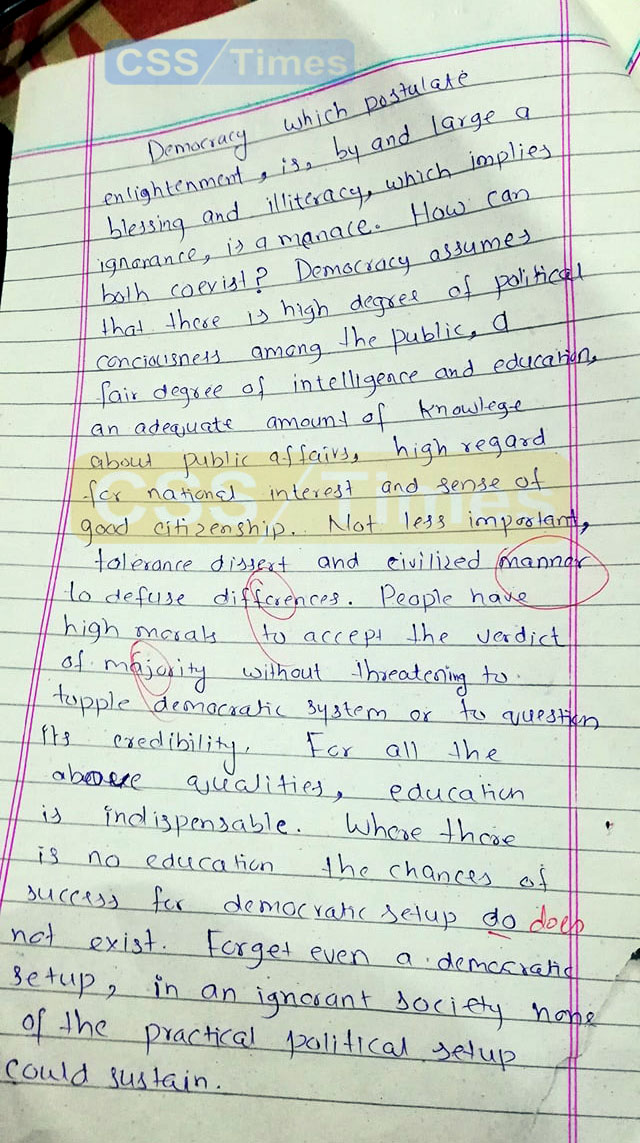 CSS/Times
Democracy which postulate
enlightenment, is, by and large a
blessing and illiteracy, which implies
ignorance, is a manace. How can
both coexist? Democracy assumes
that there is high degree of political
conciousness among the public, a
fair degree of intelligence and education,
an adequate amount of knowlege
about public affairs, high regard
for national interest and sense of
good citizenship. Not less important,
tolerance dissert and civilized mannar
to defuse differences. People have
high morals to accept the verdict
of majority without threatening to
topple democratic system or to question
its credibility. For all the
above qualities, education
is indispensable. Where there
is no education the chances of
success for democratic setup do does
not exist. Forget even a democratic
setup, in an ignorant society none
of the practical political setup
could sustain.
CSS/Times